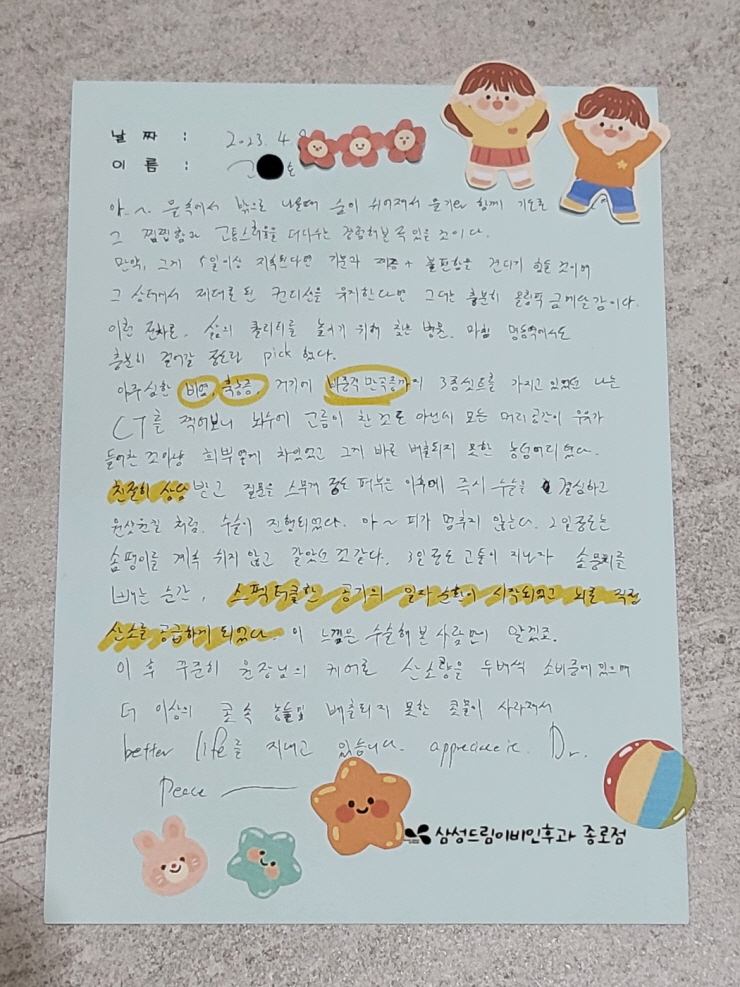 날 짜 : 2023. 4.
이 름 :
아~ 물속에서 밖으로 나올때 숨이 쉬어져서 즐거워 함께 기도로
그 찜찜함과 고통스러움을 더다수는 경험해본 적 있을 것이다.
만약, 그게 5일이상 지속된다면 기분과 저증+ 불편함을 견디기 힘들 것이며
그 상태에서 제대로 된 컨디션을 유지한다면 그대는 충분히 올림픽 금메달감이다.
이런 전차로, 삶의 퀄리티를 높이기 위해 찾은 병원. 마침 명동역에서도
충분히 걸어갈 정도라 pick 했다.
아주심한 비염, 축농증, 거기에 비중격 만곡증까지 3종셋트를 가지고 있었던 나는
CT를 찍어보니 뇌수에 고름이 찬 것도 아닌데 모든 머리공간이 우유가
들어찬 것 마냥 희뿌옇게 차있었고 그게 바로 배출되지 못한 농덩어리 였다.
친절히 상담 받고 질문을 스무개 정도 퍼부은 이후에 즉시 수술을 결심하고
일사천리 처럼 수술이 진행되었다. 아~ 피가 멈추지 않는다. 2일정도는
솜뭉치를 계속 쉬지 않고 갈았던 것같다. 3일정도 고통이 지난자 솜뭉치를
빼는 순간, 스펙터클한 공기의 일자순환이 시작되었고 뇌로 직접
산소를 공급하게 되었다. 이 느낌은 수술해 본 사람만이 알겠죠.
이 후 꾸준히 원장님의 케어로 산소량을 두배씩 소비중에 있으며
더 이상의 콧 속 농들및 배출되지 못한 콧물이 사라져서
better life를 지내고 있습니다. appreciate. Dr.
Peace
삼성드림이비인후과 종로점